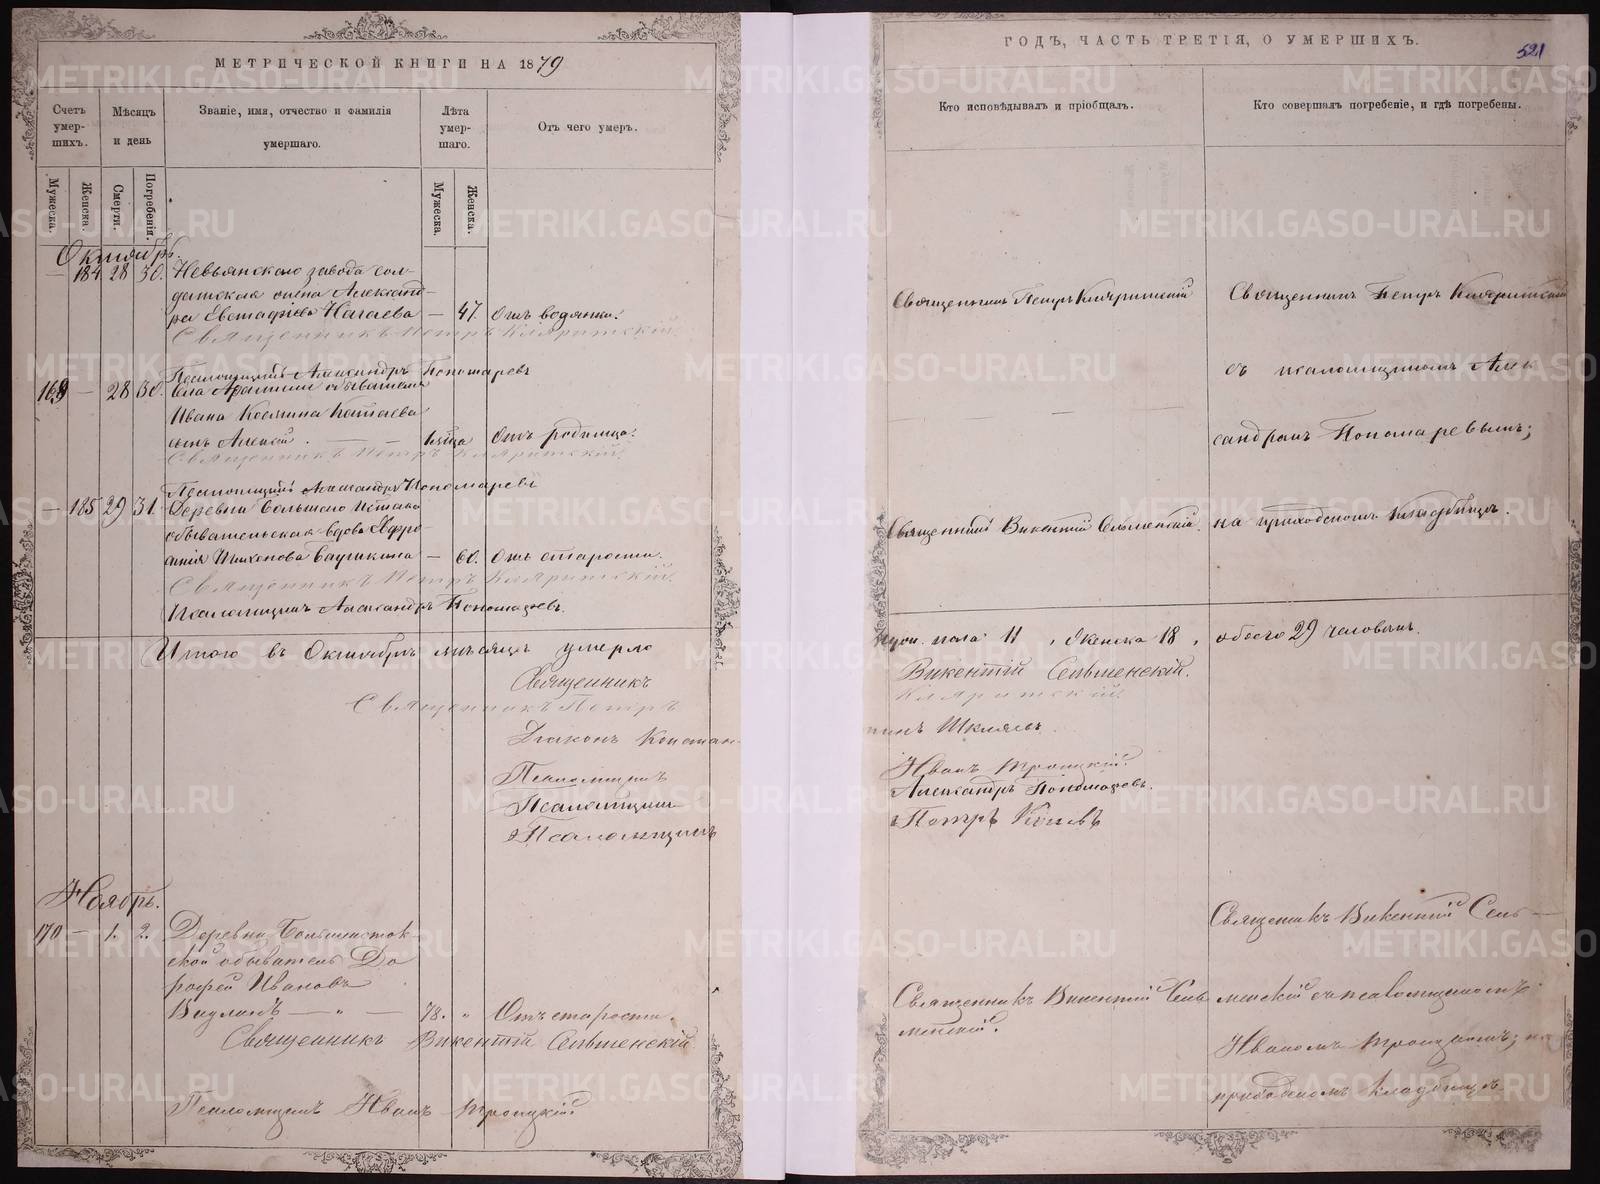 МЕТРИЧЕСКОЙ КНИГИ НА 1879
ГОДЪ, ЧАСТЬ ТРЕТІЯ, О УМЕРШИХЪ.
521
Счетъ умер-шихъ.
Мѣсяцъ и день
Званіе, имя, отчество и фамилія умершаго.
Лѣта умер-шаго.
Отъ чего умеръ.
Кто исповѣдывалъ и пріобщалъ.
Кто совершалъ погребеніе, и гдѣ погребены.
Мужеска.
Женска.
Смерти.
Погребенія.
Мужеска.
Женска.
Октябрь.
— 184 28 30. Невьянскаго завода сол-
датская жена Александ-
ра Евстафіева Нагаева — 47. Отъ водянки.
Священникъ Петръ
Псаломщикъ Александръ Пономаревъ
169 — 28 30.
Ивана Космина Катаева
сынъ Алексій. — — 1 м҃ца Отъ родимца.
Священникъ Петръ
Псаломщикъ Александръ Пономаревъ
— 185 29 31. Деревни Большаго Истока
обывательская вдова Афро-
— 60. Отъ старости.
Священникъ Петръ
Псаломщикъ Александръ Пономаревъ.
Итого въ Октябрѣ мѣсяцѣ умерло
Священникъ
Священникъ Петръ
Діаконъ Констан-
Псаломщикъ
Псаломщикъ
Псаломщикъ
Ноябрь.
170 — 1. 2. Деревни Большеисток-
ской обыватель До
рофей Ивановъ
— „ — 78. „ Отъ старости.
Священникъ Викентій Сельменскій
Псаломщикъ Иванъ Троицкій
Священникъ Петръ
Священникъ Петръ
съ псаломщикомъ Алек
сандромъ Пономаревымъ;
Священникъ Викентій Сельменскій.
на приходскомъ кладбищѣ.
муж. пола 11, Женска 18, обоего 29 человѣкъ.
Викентій Сельменскій.
тинъ Шкляевъ.
Иванъ Троицкій.
Александръ Пономаревъ.
Петръ
Священникъ Викентій Сель-
Священникъ Викентій Сель
менскій.
менскій съ псаломщикомъ
Иваномъ Троицкимъ; на
приходскомъ кладбищѣ
METRIKI.GASO-URAL.RU